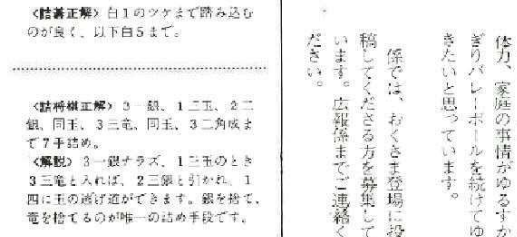 <詰碁正解> 白1のツケまで踏み込む
のが良く、以下白5まで。
<詰将棋正解> 3一銀、1二玉、2二
銀、同玉、3三竜、同玉、3二角成ま
で7手詰め。
<解説> 3一銀ナラズ、1二玉のとき
3三竜と入れば、2三銀と引かれ、1
四に玉の逃げ道ができます。銀を捨て、
竜を捨てるのが唯一の詰め手段です。
体力、家庭の事情がゆるすか
ぎりバレーボールを続けてゆ
きたいと思っています。
係では、おくさま登場に投
稿してくださる方を募集して
います。広報係までご連絡く
ださい。